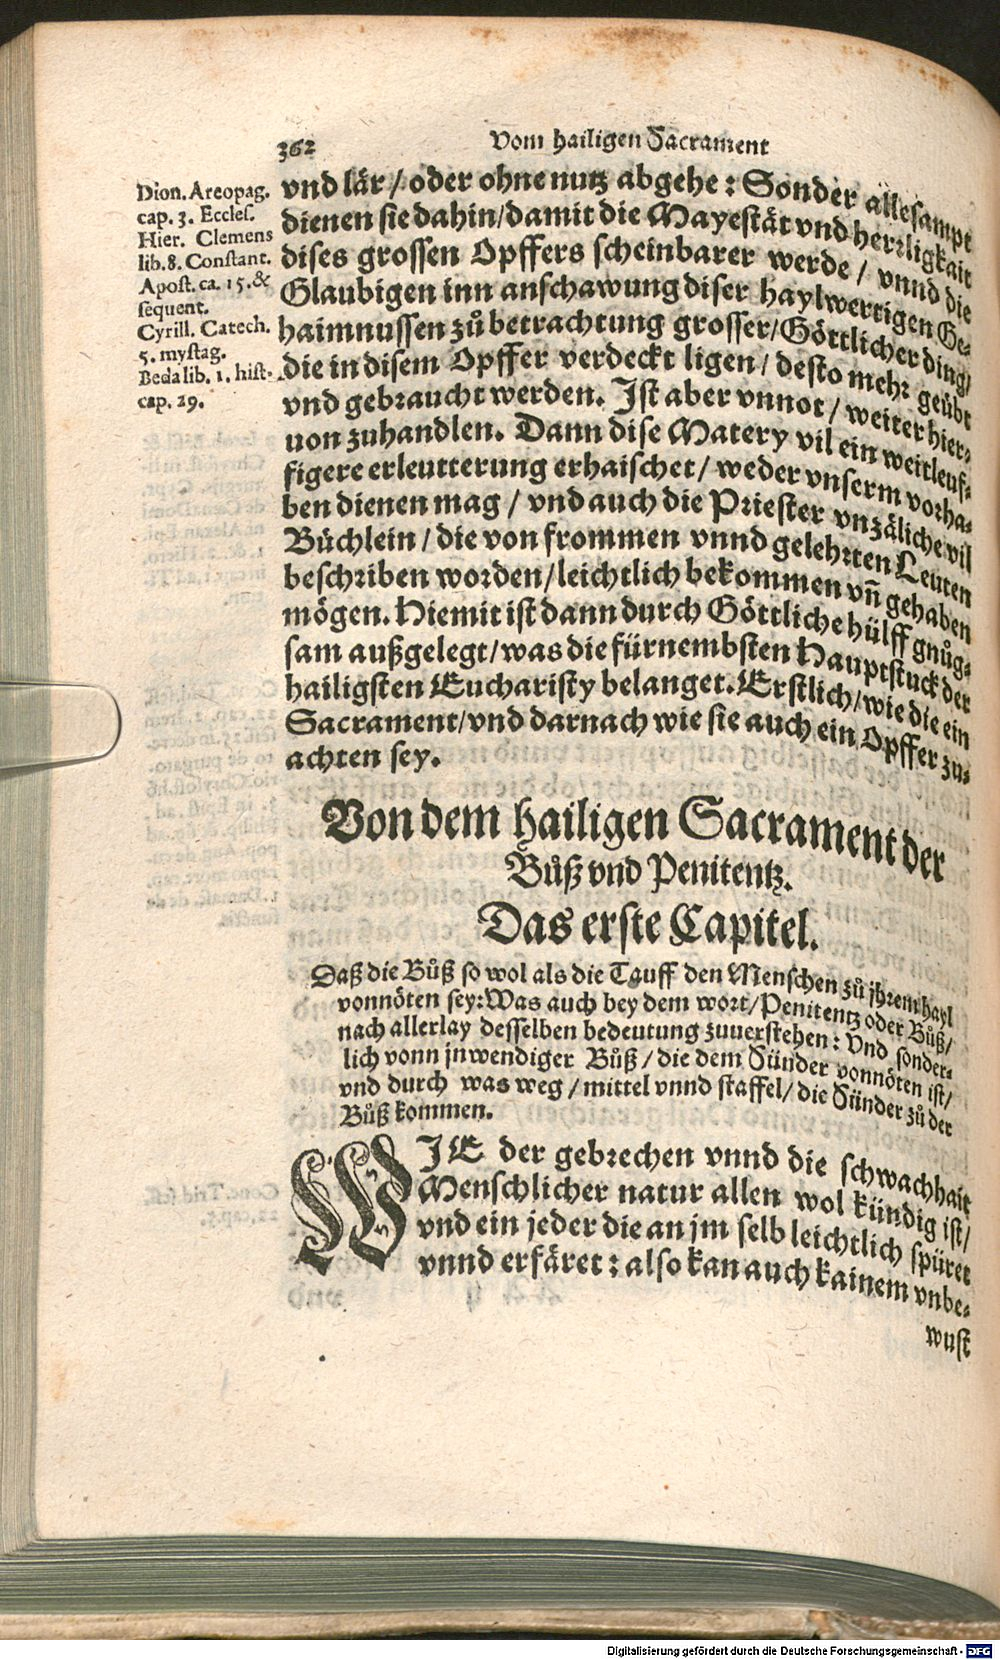 362
Vom hailigen Sacrament
Dion. Areopag.
cap. 3. Eccles.
Hier. Clemens
lib. 8. Constant.
Apost. ca. 15. &
sequent.
Cyrill. Catech.
5. mystag.
Beda lib. 1. hist.
cap. 29.
vnd lär / oder ohne nutz abgehe : Sonder allesampt
dienen sie dahin / damit die Mayestät vnd herrligkait
dises grossen Opffers scheinbarer werde / vnnd die
Glaubigen inn anschawung diser haylwertigen Ge-
haimnussen zů betrachtung grosser / Göttlicher ding /
die in disem Opffer verdeckt ligen / desto mehr geübt
vnd gebraucht werden. Ist aber vnnot / weiter hier-
uon zuhandlen. Dann dise Matery vil ein weitleuf-
figere erleutterung erhaischet / weder vnserm vorha-
ben dienen mag / vnd auch die Priester vnzäliche vil
Büchlein / die von frommen vnnd gelehrten Leuten
beschriben worden / leichtlich bekommen vñ gehaben
mögen. Hiemit ist dann durch Göttliche hülff gnůg-
sam außgelegt / was die fürnembsten Hauptstuck der
hailigsten Eucharisty belanget. Erstlich / wie die ein
Sacrament / vnd darnach wie sie auch ein Opffer zu-
achten sey.
Von dem hailigen Sacrament der
Bůß vnd Penitentz.
Das erste Capitel.
Daß die Bůß so wol als die Tauff den Menschen zů jhrem hayl
vonnöten sey: Was auch bey dem wort / Penitentz oder Bůß /
nach allerlay desselben bedeutung zuuerstehen : Vnd sonder-
lich vonn jnwendiger Bůß / die dem Sünder vonnöten ist /
vnd durch was weg / mittel vnnd staffel / die Sünder zů der
Bůß kommen.
WIE der gebrechen vnnd die schwachhait
Menschlicher natur allen wol kündig ist /
vnd ein jeder die an jm selb leichtlich spüret
vnnd erfäret : also kan auch kainem vnbe-
wust
Digitalisierung gefördert durch die Deutsche Forschungsgemeinschaft - DFG